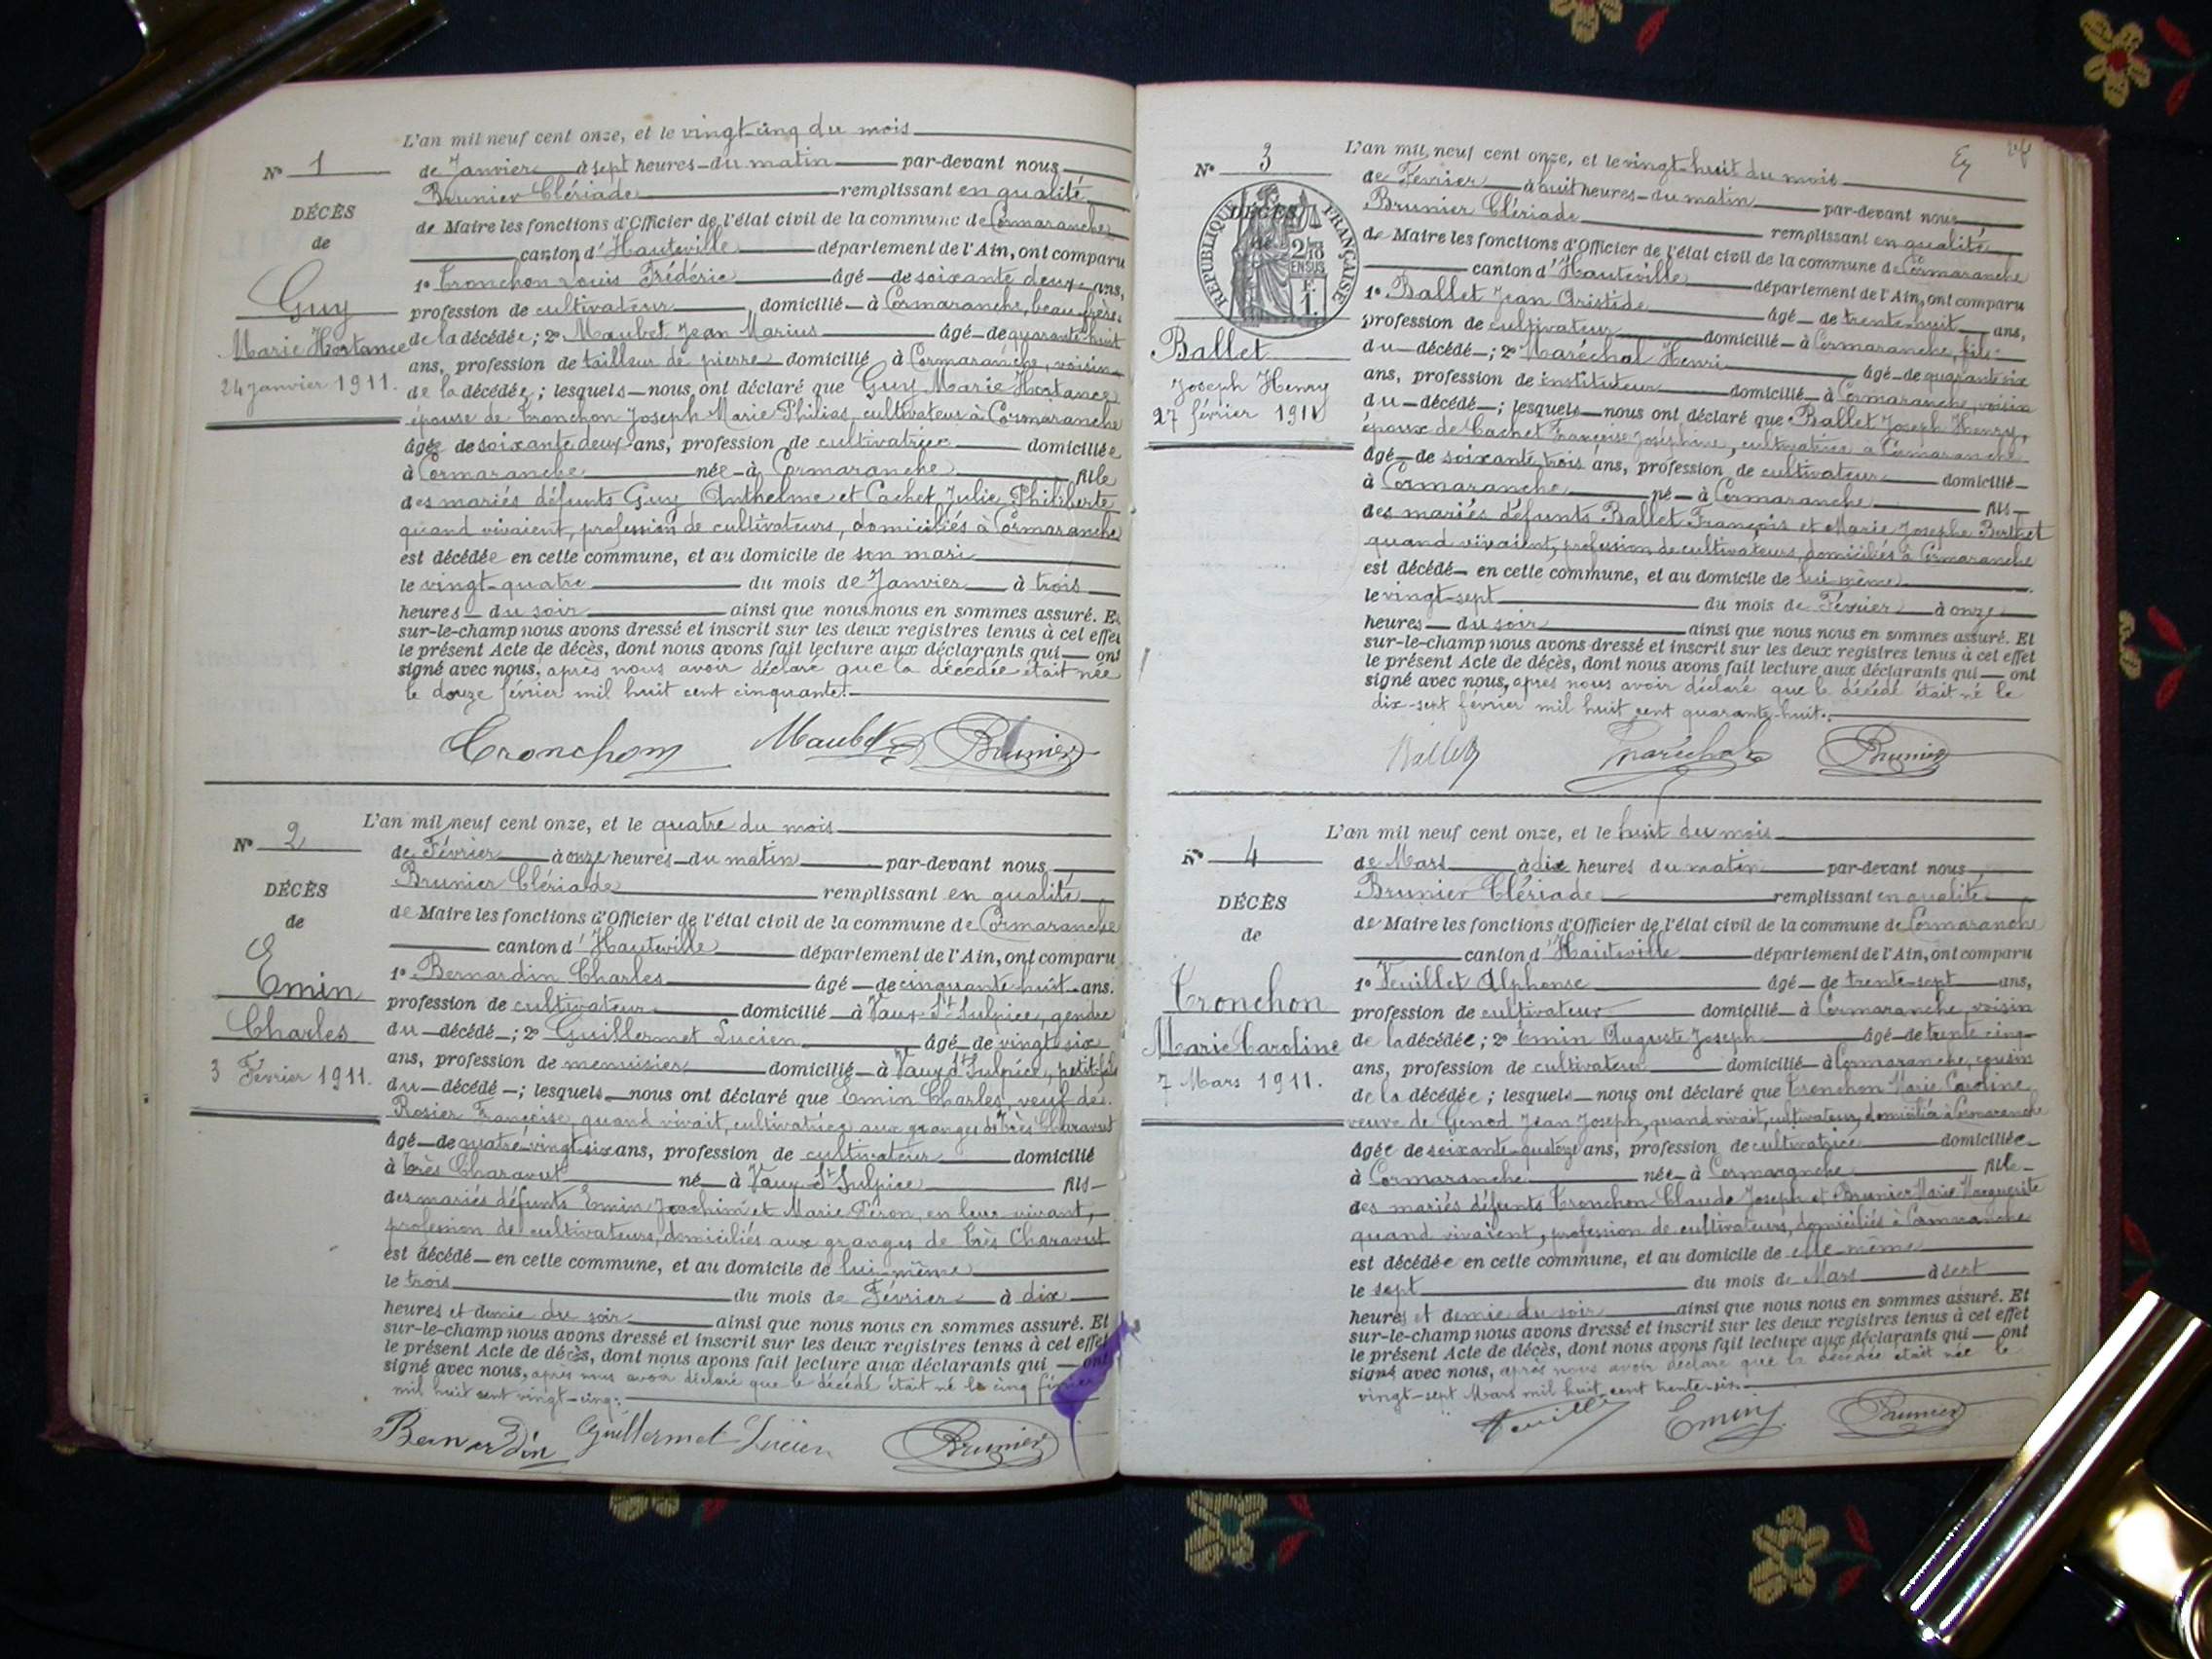 L'an mil neuf cent onze, et le vingt-cinq du mois
N° 1
de Janvier à sept heures du matin par-devant nous
Brunier Clériade remplissant en qualité
DÉCÈS
de Maire les fonctions d'Officier de l'état civil de la commune de Cormaranche
de
canton d'Hauteville département de l'Ain, ont comparu
1° Tronchon Louis Frédéric âgé de soixante deux ans,
Guy
profession de cultivateur domicilié à Cormaranche, beau-frère
Marie Hortance
de la décédée; 2° Maubet Jean Marius âgé de quarante-huit
ans, profession de tailleur de pierre domicilié à Cormaranche, voisin
24 Janvier 1911.
de la décédée; lesquels nous ont déclaré que Guy Marie Hortance
épouse de Tronchon Joseph Marie Philias, cultivateur à Cormaranche
âgée de soixante deux ans, profession de cultivatrice domiciliée
à Cormaranche née à Cormaranche fille
des mariés défunts Guy Anthelme et Cachet Julie Philiberte
quand vivaient, profession de cultivateurs, domiciliés à Cormaranche
est décédée en cette commune, et au domicile de son mari
le vingt-quatre du mois de Janvier à trois
heures du soir ainsi que nous nous en sommes assuré. Et
sur-le-champ nous avons dressé et inscrit sur les deux registres tenus à cet effet
le présent Acte de décès, dont nous avons fait lecture aux déclarants qui ont
signé avec nous, après nous avoir déclaré que la décédée était née
le douze février mil huit cent cinquante.
Tronchon Maubet Brunier
L'an mil neuf cent onze, et le quatre du mois
N° 2
de Février à onze heures du matin par-devant nous
Brunier Clériade remplissant en qualité
DÉCÈS
de Maire les fonctions d'Officier de l'état civil de la commune de Cormaranche
de
canton d'Hauteville département de l'Ain, ont comparu
1° Bernardin Charles âgé de cinquante huit ans.
Emin
profession de cultivateur domicilié à Vaux-St-Sulpice, gendre
Charles
du décédé; 2° Guillermet Lucien âgé de vingt-six
ans, profession de menuisier domicilié à Vaux St Sulpice, petit-fils
3 Février 1911.
du décédé; lesquels nous ont déclaré que Emin Charles, veuf de
Rosier Françoise, quand vivait, cultivatrice aux granges de Très Charavut
âgé de quatre-vingt-six ans, profession de cultivateur domicilié
à Très Charavut né à Vaux-St-Sulpice fils
des mariés défunts Emin Joachim et Marie Péron, en leur vivant,
profession de cultivateurs, domiciliés aux granges de Très Charavut
est décédé en cette commune, et au domicile de lui-même
le trois du mois de Février à dix
heures et demie du soir ainsi que nous nous en sommes assuré. Et
sur-le-champ nous avons dressé et inscrit sur les deux registres tenus à cet effet
le présent Acte de décès, dont nous avons fait lecture aux déclarants qui ont
signé avec nous, après nous avoir déclaré que le décédé était né le cinq février
mil huit cent vingt-cinq.
Bernardin Guillermet Lucien Brunier
L'an mil neuf cent onze, et le vingt-huit du mois
N° 3
de Février à huit heures du matin par-devant nous
Brunier Clériade remplissant en qualité
DÉCÈS
de
RÉPUBLIQUE FRANÇAISE
2/10 EN SUS
F. 1.
de Maire les fonctions d'Officier de l'état civil de la commune de Cormaranche
canton d'Hauteville département de l'Ain, ont comparu
1° Ballet Jean Aristide âgé de trente huit ans,
profession de cultivateur domicilié à Cormaranche, fils
Ballet
du décédé; 2° Maréchal Henri âgé de quarante six
Joseph Henry
ans, profession de instituteur domicilié à Cormaranche, voisin
27 février 1911
du décédé; lesquels nous ont déclaré que Ballet Joseph Henry,
époux de Cachet Françoise Joséphine, cultivatrice à Cormaranche
âgé de soixante trois ans, profession de cultivateur domicilié
à Cormaranche né à Cormaranche fils
des mariés défunts Ballet François et Marie Josephe Berthet
quand vivaient, profession de cultivateurs, domiciliés à Cormaranche
est décédé en cette commune, et au domicile de lui-même
le vingt-sept du mois de Février à onze
heures du soir ainsi que nous nous en sommes assuré. Et
sur-le-champ nous avons dressé et inscrit sur les deux registres tenus à cet effet
le présent Acte de décès, dont nous avons fait lecture aux déclarants qui ont
signé avec nous, après nous avoir déclaré que le décédé était né le
dix-sept février mil huit cent quarante-huit.
Ballet Maréchal Brunier
L'an mil neuf cent onze, et le huit du mois
N° 4
de Mars à dix heures du matin par-devant nous
Brunier Clériade remplissant en qualité
DÉCÈS
de Maire les fonctions d'Officier de l'état civil de la commune de Cormaranche
de
canton d'Hauteville département de l'Ain, ont comparu
1° Feuillet Alphonse âgé de trente-sept ans,
Tronchon
profession de cultivateur domicilié à Cormaranche, voisin
Marie Caroline
de la décédée; 2° Emin Auguste Joseph âgé de trente cinq
ans, profession de cultivateur domicilié à Cormaranche, cousin
7 Mars 1911.
de la décédée; lesquels nous ont déclaré que Tronchon Marie Caroline
veuve de Genod Jean Joseph, quand vivait, cultivateur, domicilié à Cormaranche
âgée de soixante-quatorze ans, profession de cultivatrice domiciliée
à Cormaranche née à Cormaranche fille
des mariés défunts Tronchon Claude Joseph et Brunier Marie Marguerite
quand vivaient, profession de cultivateurs, domiciliés à Cormaranche
est décédée en cette commune, et au domicile de elle-même
le sept du mois de Mars à sept
heures et demie du soir ainsi que nous nous en sommes assuré. Et
sur-le-champ nous avons dressé et inscrit sur les deux registres tenus à cet effet
le présent Acte de décès, dont nous avons fait lecture aux déclarants qui ont
signé avec nous, après nous avoir déclaré que la décédée était née le
vingt-sept Mars mil huit cent trente-six.
Feuillet Emin Brunier